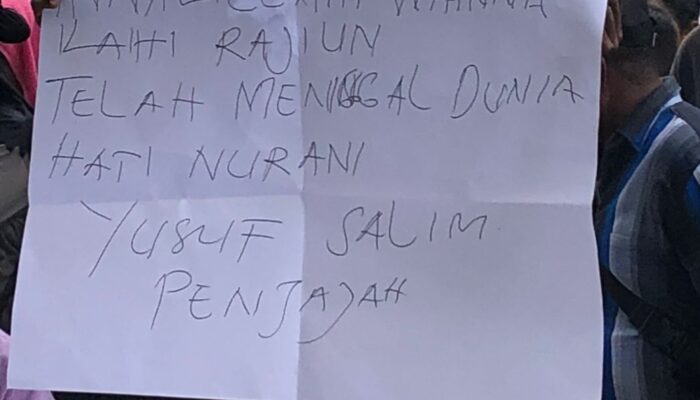 ILAIHI RAJIUN
TELAH MENINGGAL DUNIA
HATI NURANI
YUSUF SALIM
PENJAJAH